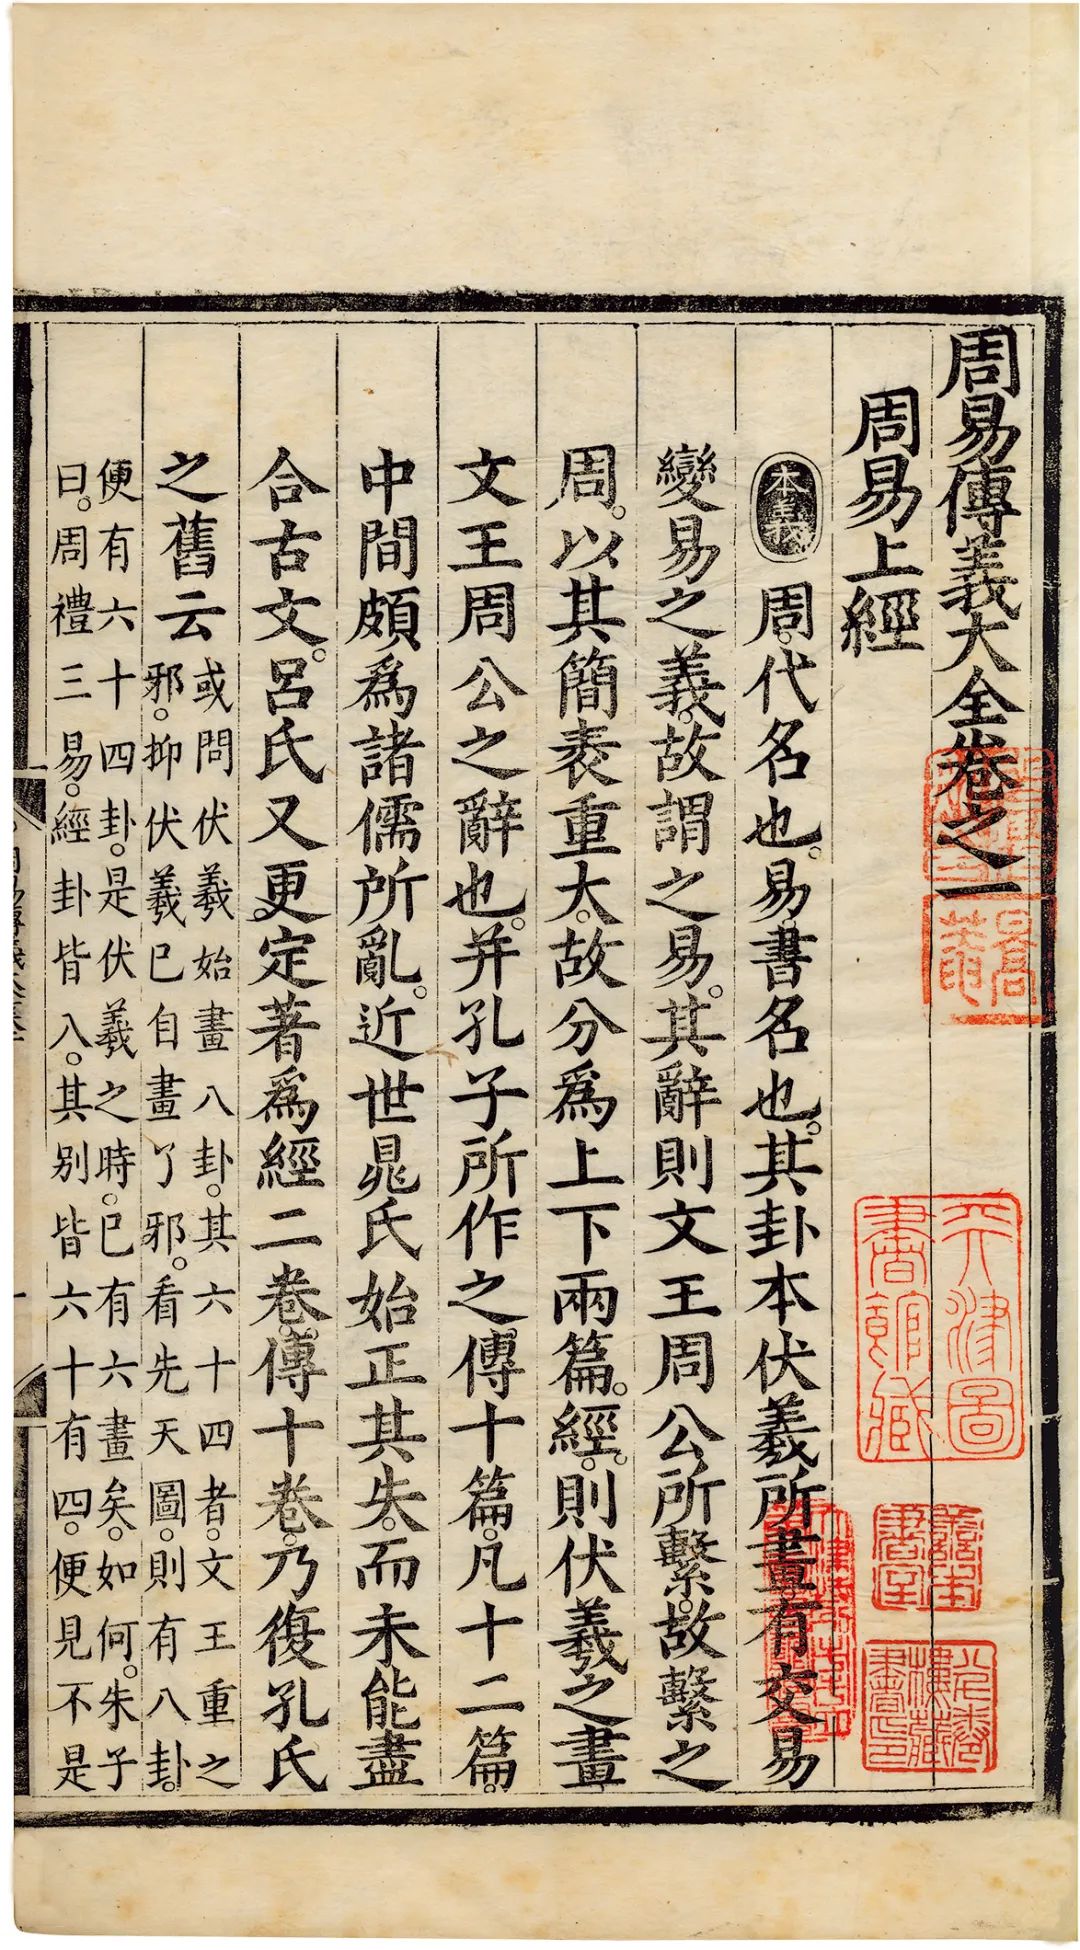 周易傳義大全卷之一
周易上經
本義
周。代名也。易。書名也。其卦本伏羲所畫。有交易
變易之義。故謂之易。其辭則文王周公所繫。故繫之
周。以其簡袠重大。故分爲上下兩篇。經。則伏羲之畫
文王周公之辭也。并孔子所作之傳十篇。凡十二篇。
中間頗爲諸儒所亂。近世晁氏始正其失。而未能盡
合古文。呂氏又更定著爲經二卷。傳十卷。乃復孔氏
之舊云
或問伏羲始畫八卦。其六十四者。文王重之
邪。抑伏羲已自畫了邪。看先天圖。則有八卦。
便有六十四卦。是伏羲之時。已有六畫矣。如何。朱子
曰。周禮三易。經卦皆八。其別皆六十有四。便見不是
天津圖
書館藏